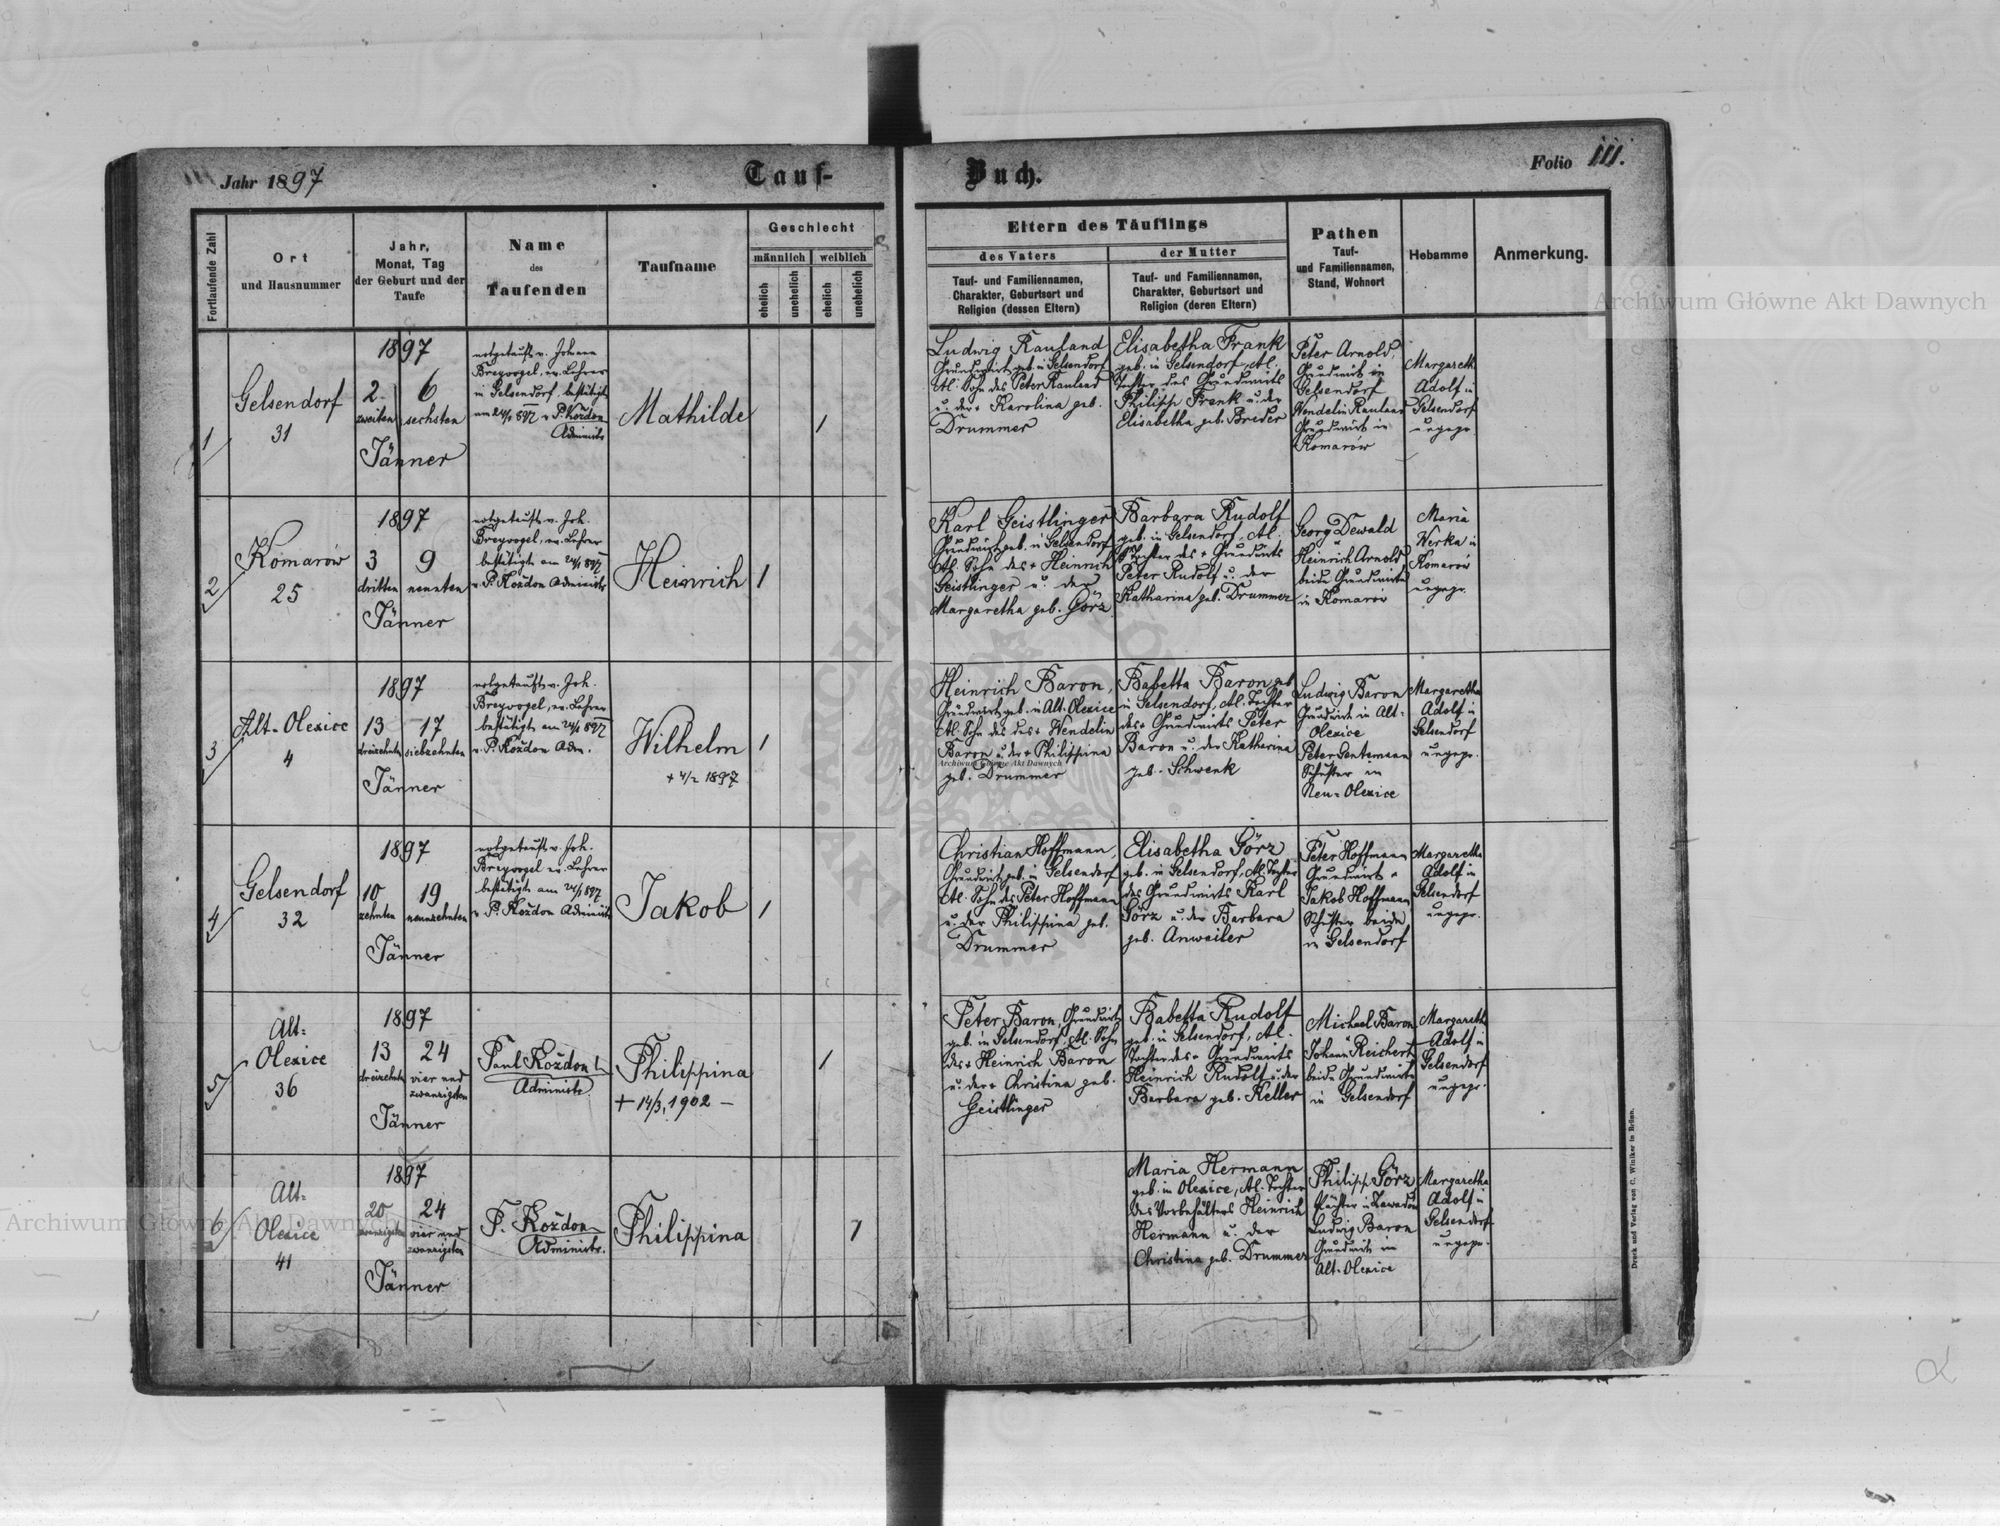 Jahr 1897
Tauf-
Buch.
Folio 111.
Fortlaufende Zahl
Ort
und Hausnummer
Jahr,
Monat, Tag
der Geburt und der
Taufe
Name
des
Taufenden
Taufname
Geschlecht
männlich
weiblich
ehelich
unehelich
ehelich
unehelich
Eltern des Täuflings
des Vaters
der Mutter
Tauf- und Familiennamen,
Charakter, Geburtsort und
Religion (dessen Eltern)
Tauf- und Familiennamen,
Charakter, Geburtsort und
Religion (deren Eltern)
Pathen
Tauf-
und Familiennamen,
Stand, Wohnort
Hebamme
Anmerkung.
1
Gelsendorf
31
1897
2. 6
zweiten sechsten
Jänner
notgetauft v. Johann
Breyvogel, ev. Lehrer
in Gelsendorf, bestätigt
am 24/1 897 v. P. Kozdon
Administr
Mathilde
1
Ludwig Rauland
Grundwirt geb. in Gelsendorf
Al. Sohn des Peter Rauland
u. der + Karolina geb.
Drummer
Elisabetha Frank
geb. in Gelsendorf, Al.
Tochter des Grundwirts
Philipp Frenk u. der
Elisabetha geb. Breder
Peter Arnold,
Grundwirt in
Gelsendorf
Wendelin Rauland
Grundwirt in
Komarów
Margareth
Adolf in
Gelsendorf
ungepr.
2
Komarów
25
1897
3 9
dritten neunten
Jänner
notgetauft v. Joh.
Breyvogel, ev. Lehrer
bestätigt am 24/1 897
v. P. Kozdon Administr
Heinrich
1
Karl Geistlinger
Grundwirt geb. in Gelsendorf
Al. Sohn des + Heinrich
Geistlinger u. der
Margaretha geb. Görz
Barbara Rudolf
geb. in Gelsendorf, Al.
Tochter des + Grundwirts
Peter Rudolf u. der
Katharina geb. Drummer
Georg Dewald
u
Heinrich Arnold
beide Grundwirte
in Komarów
Maria
Werka in
Komarów
ungepr.
3
Alt-Olexice
4
1897
13 17
dreizehnten siebzehnten
Jänner
notgetauft v. Joh.
Breyvogel, ev. Lehrer
bestätigt am 24/1 897
v. P. Kozdon Adm.
Wilhelm
+ 4/2 1897
1
Heinrich Baron,
Grundwirt geb. in Alt-Olexice
Al. Sohn des des + Wendelin
Baron u. der + Philippina
geb. Drummer
Babetta Baron geb
in Gelsendorf, Al. Tochter
des + Grundwirts Peter
Baron u. der Katharina
geb. Schwenk
Ludwig Baron
Grundwirt in Alt-
Olexice
Peter Gentemann
Schuster in
Neu-Olexice
Margaretha
Adolf in
Gelsendorf
ungepr.
4
Gelsendorf
32
1897
10 19
zehnten neunzehnten
Jänner
notgetauft v. Joh.
Breyvogel ev. Lehrer
bestätigt am 24/1 897
v. P. Kozdon Administr
Jakob
1
Christian Hoffmann,
Grundwirt geb. in Gelsendorf
Al. Sohn des Peter Hoffmann
u. der Philippina geb.
Drummer
Elisabetha Görz
geb. in Gelsendorf, Al. Tochter
des Grundwirts Karl
Görz u. der Barbara
geb. Anweiler
Peter Hoffmann
Grundwirt u
Jakob Hoffmann
Schuster beide
in Gelsendorf
Margaretha
Adolf in
Gelsendorf
ungepr.
5
Alt-
Olexice
36
1897
13 24
dreizehnten vier und
zwanzigsten
Jänner
Paul Kozdon
Administr
Philippina
+ 14/3. 1902 -
1
Peter Baron, Grundwirt
geb. in Gelsendorf, Al. Sohn
des + Heinrich Baron
u. der + Christina geb.
Geistlinger
Babetta Rudolf
geb. in Gelsendorf, Al.
Tochter des + Grundwirts
Heinrich Rudolf u. der
Barbara geb. Keller
Michael Baron
Johann Reichert
beide Grundwirte
in Gelsendorf
Margaretha
Adolf in
Gelsendorf
ungepr.
6
Alt-
Olexice
41
1897
20 24
zwanzigsten vier und
zwanzigsten
Jänner
P. Kozdon
Administr.
Philippina
1
Maria Hermann
geb. in Olexice, Al. Tochter
des Vorbehälters Heinrich
Hermann u. der
Christina geb. Drummer
Philipp Görz
Pächter in Zawadów
Ludwig Baron
Grundwirt in
Alt-Olexice
Margaretha
Adolf in
Gelsendorf
ungepr.
Druck und Verlag von C. Winiker in Brünn.
Archiwum Główne Akt Dawnych
Archiwum Główne Akt Dawnych
Archiwum Główne Akt Dawnych